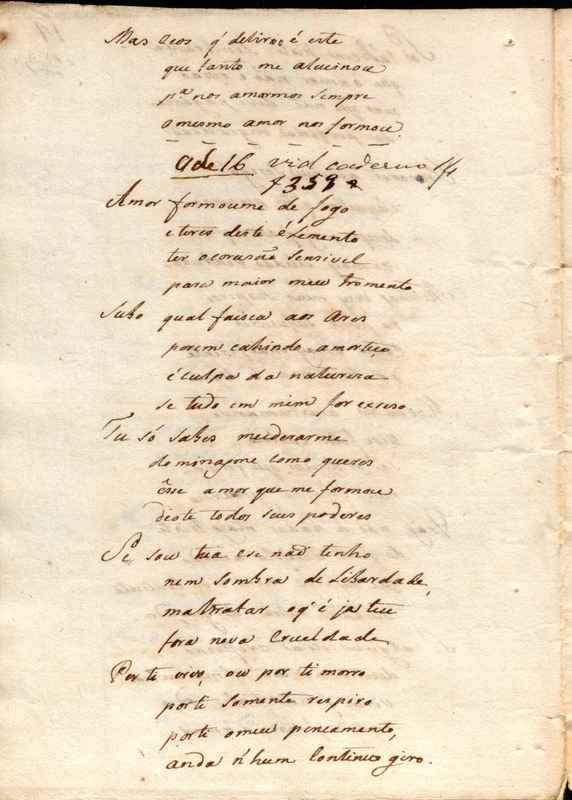 Mas Deos q' delirio é este
que tanto me alucinou
p.ª nos amarmos sempre
o mesmo amor nos formou
Ode 16 vid caderno 14
f 359
Amor formoume de fogo
e teres deste élemento
ter o corasaõ sensivel
para maior meu tromento
Subo qual faisca aos Ares
porem cahindo amorteço
é culpa da natureza
se tudo em mim for exceso
Tu só sabes
dominasme como queres
êsse amor que me formou
deote todos seus poderes
Se sou tua e se naõ tenho
nem sombra de Libardade,
maltratar oq' é ja teu
fora nova Crueldade
Por ti vivo, ou por ti morro
por ti somente respiro
por ti o meu pencamento,
anda n'hum Continuo giro.